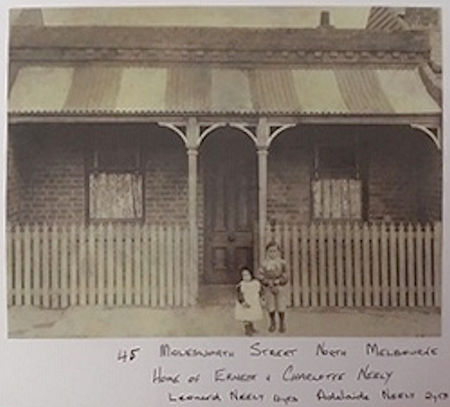 45 MOLESWORTH STREET NORTH MELBOURNE
HOME OF ERNEST & CHARLOTTE NEELY
LEONARD NEELY 4yrs ADELAIDE NEELY 2yrs